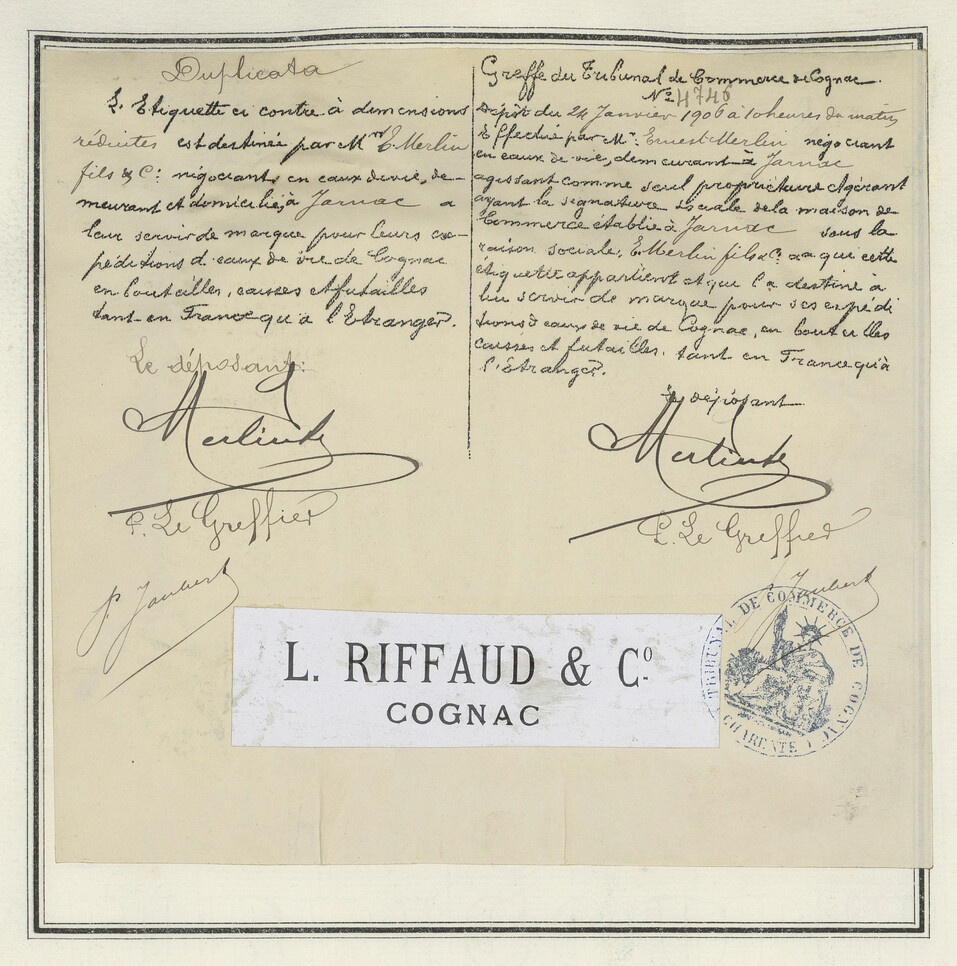 Duplicata
L'Etiquette ci contre à dimensions
réduites est destinée par Mr E. Merlin
fils & Cie négociants en eaux de vie, de-
meurant et domiciliés à Jarnac a
leur servir de marque pour leurs ex-
péditions d'eaux de vie de Cognac
en bouteilles, caisses et futailles
tant en France qu'à l'Etranger.
Le déposant:
Merlin
P. Le Greffier
P. Jaubert
Greffe du Tribunal de Commerce de Cognac.
No 4746
Dépôt du 24 Janvier 1906 à 10 heures du matin
Effectué par Mr. Ernest Merlin négociant
en eaux de vie, demeurant à Jarnac
agissant comme seul propriétaire et gérant
ayant la signature sociale de la maison de
Commerce établie à Jarnac sous la
raison sociale, E. Merlin fils & Co. que cette
étiquette appartient et qu'il a destiné à
lui servir de marque pour ses expédi
tions d'eaux de vie de Cognac, en bouteilles
caisses et futailles, tant en France qu'à
l'étranger.
Le déposant
Merlin
P. Le Greffier
P. Jaubert
L. RIFFAUD & Co.
COGNAC
TRIBUNAL DE COMMERCE DE COGNAC
CHARENTE